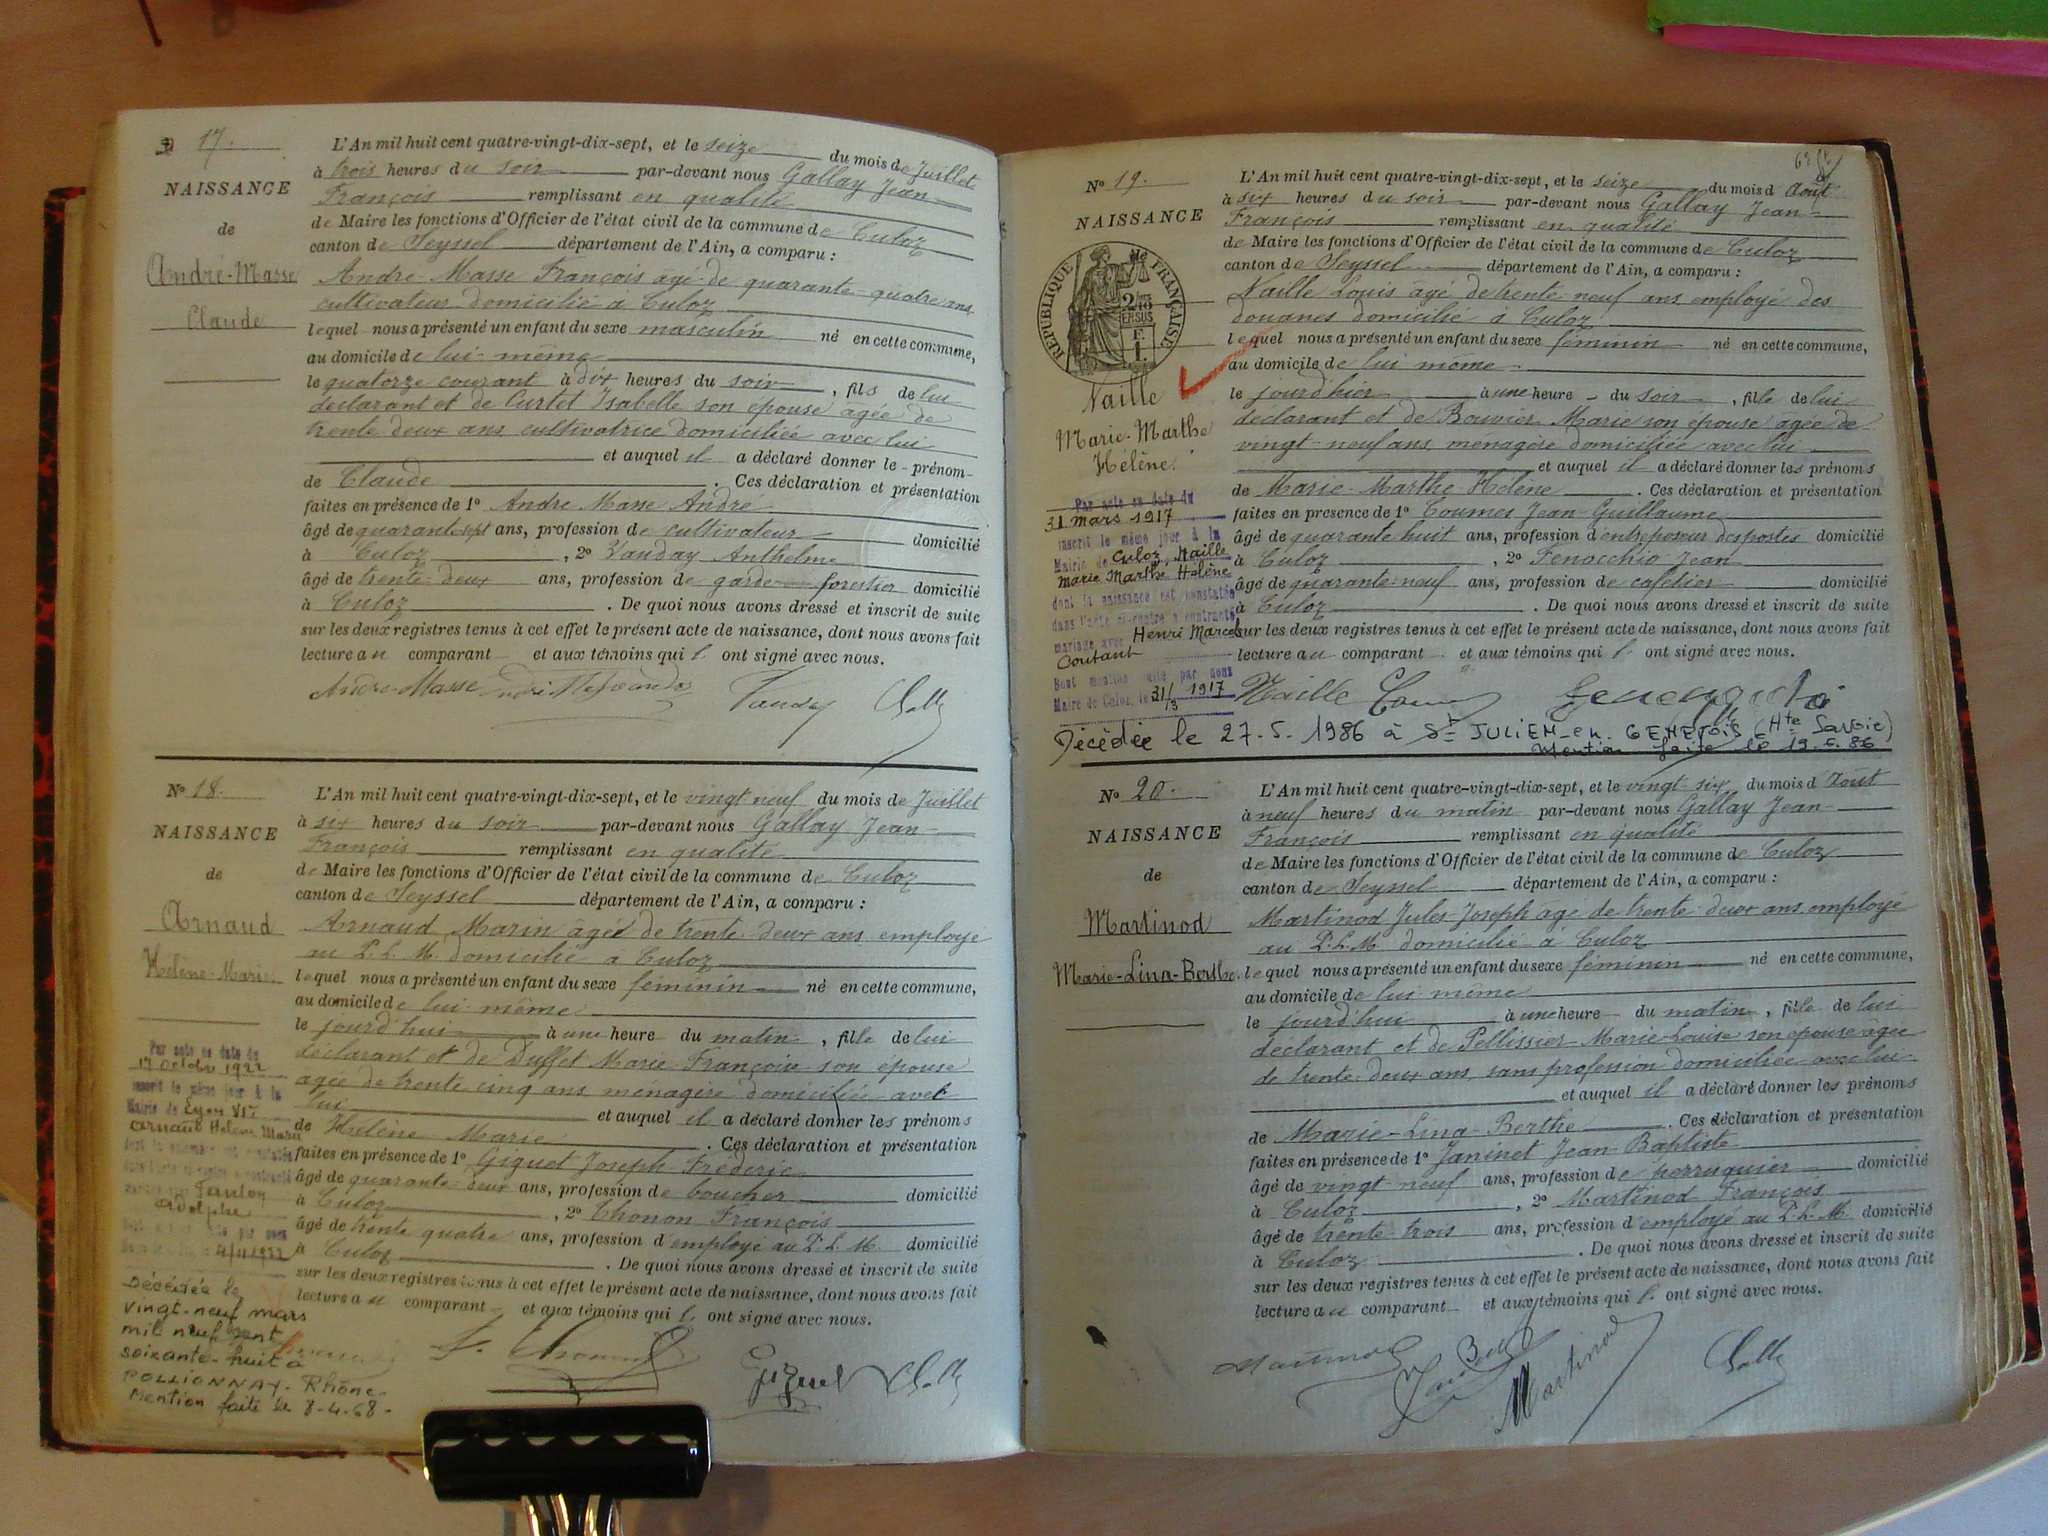 17.
NAISSANCE
de
André-Masse
Claude
L'An mil huit cent quatre-vingt-dix-sept, et le seize du mois de Juillet
à trois heures du soir par-devant nous Gallay Jean-
François remplissant en qualité
de Maire les fonctions d'Officier de l'état civil de la commune de Culoz
canton de Seyssel département de l'Ain, a comparu :
André-Masse François agé de quarante-quatre ans
cultivateur domicilié à Culoz
lequel nous a présenté un enfant du sexe masculin né en cette commune,
au domicile de lui-même
le quatorze courant à dix heures du soir, fils de lui
déclarant et de Curtet Isabelle son épouse agée de
trente deux ans cultivatrice domiciliée avec lui
et auquel il a déclaré donner le prénom
de Claude. Ces déclaration et présentation
faites en présence de 1º André Masse André
âgé de quarante sept ans, profession de cultivateur domicilié
à Culoz, 2º Vauday Anthelme
âgé de trente-deux ans, profession de garde forestier domicilié
à Culoz. De quoi nous avons dressé et inscrit de suite
sur les deux registres tenus à cet effet le présent acte de naissance, dont nous avons fait
lecture au comparant et aux témoins qui ont signé avec nous.
André-Masse Vauday
Nº 18.
NAISSANCE
de
Arnaud
Hélène-Marie
Par acte en date du
17 Octobre 1922
inscrit le même jour à la
Mairie de Lyon VIº
Arnaud Hélène Marie
Adolphe
4/11/1922
Décédée le
vingt-neuf mars
mil neuf cent
soixante-huit à
POLLIONNAY. Rhône.
Mention faite le 8-4-68.
L'An mil huit cent quatre-vingt-dix-sept, et le vingt neuf du mois de Juillet
à six heures du soir par-devant nous Gallay Jean-
François remplissant en qualité
de Maire les fonctions d'Officier de l'état civil de la commune de Culoz
canton de Seyssel département de l'Ain, a comparu :
Arnaud Marin âgé de trente-deux ans employé
au P. L. M. domicilié à Culoz
lequel nous a présenté un enfant du sexe féminin né en cette commune,
au domicile de lui-même
le jourd'hui à une heure du matin, fille de lui
déclarant et de Duffet Marie-Françoise son épouse
agée de trente cinq ans ménagère domiciliée avec
lui et auquel il a déclaré donner les prénoms
de Hélène Marie. Ces déclaration et présentation
faites en présence de 1º Giguet Joseph-Frédéric
âgé de quarante-deux ans, profession de boucher domicilié
à Culoz, 2º Thonon François
âgé de trente quatre ans, profession d'employé au P. L. M. domicilié
à Culoz. De quoi nous avons dressé et inscrit de suite
sur les deux registres tenus à cet effet le présent acte de naissance, dont nous avons fait
lecture au comparant et aux témoins qui ont signé avec nous.
Nº 19.
NAISSANCE
de
RÉPUBLIQUE FRANÇAISE
Naille
Marie-Marthe
Hélène
Par acte en date du
31 mars 1917
inscrit le même jour à la
Mairie de Culoz, Naille
Marie Marthe Hélène
dont la naissance est constatée
dans l'acte ci-contre a contracté
mariage avec Henri Marcel
Coutant
Dont mention faite par nous
Maire de Culoz, le 31/3 1917
L'An mil huit cent quatre-vingt-dix-sept, et le seize du mois d Août
à six heures du soir par-devant nous Gallay Jean-
François remplissant en qualité
de Maire les fonctions d'Officier de l'état civil de la commune de Culoz
canton de Seyssel département de l'Ain, a comparu :
Naille Louis âgé de trente-neuf ans employé des
douanes domicilié à Culoz
lequel nous a présenté un enfant du sexe féminin né en cette commune,
au domicile de lui même
le jourd'hier à une heure du soir, fille de lui
déclarant et de Bouvier Marie son épouse âgée de
vingt-neuf ans ménagère domiciliée avec lui
et auquel il a déclaré donner les prénoms
de Marie-Marthe-Hélène. Ces déclaration et présentation
faites en présence de 1º Coumes Jean-Guillaume
âgé de quarante huit ans, profession d'entreposeur des postes domicilié
à Culoz, 2º Fenocchio Jean
âgé de quarante-neuf ans, profession de cafetier domicilié
à Culoz. De quoi nous avons dressé et inscrit de suite
sur les deux registres tenus à cet effet le présent acte de naissance, dont nous avons fait
lecture au comparant et aux témoins qui ont signé avec nous.
Naille
Décédée le 27.5.1986 à St JULIEN-en. GENEVOIS (Hte Savoie)
Mention faite le 19.6.86
Nº 20.
NAISSANCE
de
Martinod
Marie-Lina-Berthe.
L'An mil huit cent quatre-vingt-dix-sept, et le vingt-six du mois d Août
à neuf heures du matin par-devant nous Gallay Jean-
François remplissant en qualité
de Maire les fonctions d'Officier de l'état civil de la commune de Culoz
canton de Seyssel département de l'Ain, a comparu :
Martinod Jules-Joseph âgé de trente-deux ans employé
au P. L. M. domicilié à Culoz
lequel nous a présenté un enfant du sexe féminin né en cette commune,
au domicile de lui-même
le jourd'hui à une heure du matin, fille de lui
déclarant et de Pellissier Marie-Louise son épouse agée
de trente-deux ans sans profession domiciliée avec lui
et auquel il a déclaré donner les prénoms
de Marie-Lina-Berthe. Ces déclaration et présentation
faites en présence de 1º Janinet Jean-Baptiste
âgé de vingt-neuf ans, profession de perruquier domicilié
à Culoz, 2º Martinod François
âgé de trente-trois ans, profession d'employé au P. L. M. domicilié
à Culoz. De quoi nous avons dressé et inscrit de suite
sur les deux registres tenus à cet effet le présent acte de naissance, dont nous avons fait
lecture au comparant et aux témoins qui ont signé avec nous.
Martinod